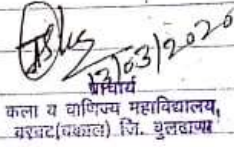 13/03/2020
प्राचार्य
कला व वाणिज्य महाविद्यालय,
वरवट(बकाल) जि. बुलढाणा